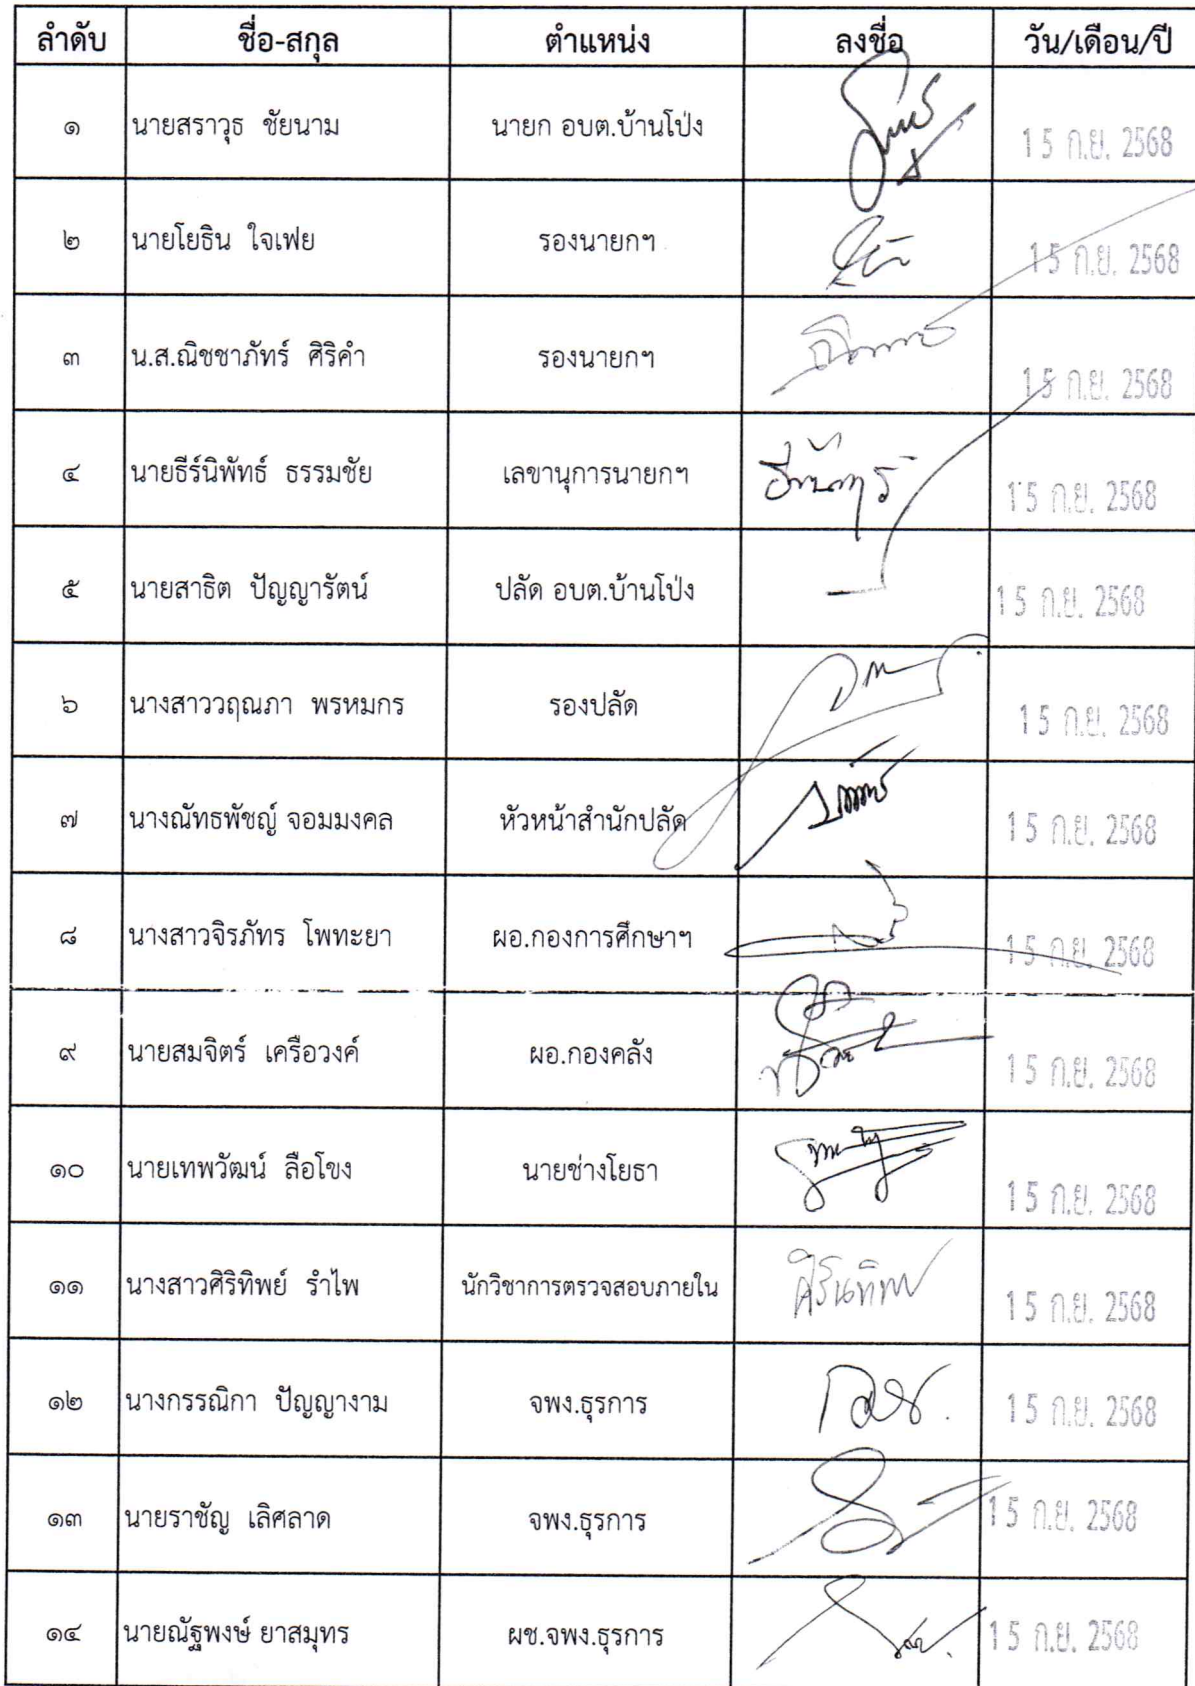 ลำดับ ชื่อ-สกุล ตำแหน่ง ลงชื่อ วัน/เดือน/ปี
๑ นายสราวุธ ชัยนาม นายก อบต.บ้านโป่ง 15 ก.ย. 2568
๒ นายโยธิน ใจเฟย รองนายกฯ 15 ก.ย. 2568
๓ น.ส.ณิชชาภัทร์ ศิริคำ รองนายกฯ 15 ก.ย. 2568
๔ นายธีร์นิพัทธ์ ธรรมชัย เลขานุการนายกฯ 15 ก.ย. 2568
๕ นายสาธิต ปัญญารัตน์ ปลัด อบต.บ้านโป่ง 15 ก.ย. 2568
๖ นางสาววฤณภา พรหมกร รองปลัด 15 ก.ย. 2568
๗ นางณัทธพัชญ์ จอมมงคล หัวหน้าสำนักปลัด 15 ก.ย. 2568
๘ นางสาวจิรภัทร โพทะยา ผอ.กองการศึกษาฯ 15 ก.ย. 2568
๙ นายสมจิตร์ เครือวงค์ ผอ.กองคลัง 15 ก.ย. 2568
๑๐ นายเทพวัฒน์ ลือโขง นายช่างโยธา 15 ก.ย. 2568
๑๑ นางสาวศิริทิพย์ รำไพ นักวิชาการตรวจสอบภายใน 15 ก.ย. 2568
๑๒ นางกรรณิกา ปัญญางาม จพง.ธุรการ 15 ก.ย. 2568
๑๓ นายราชัญ เลิศลาด จพง.ธุรการ 15 ก.ย. 2568
๑๔ นายณัฐพงษ์ ยาสมุทร ผช.จพง.ธุรการ 15 ก.ย. 2568